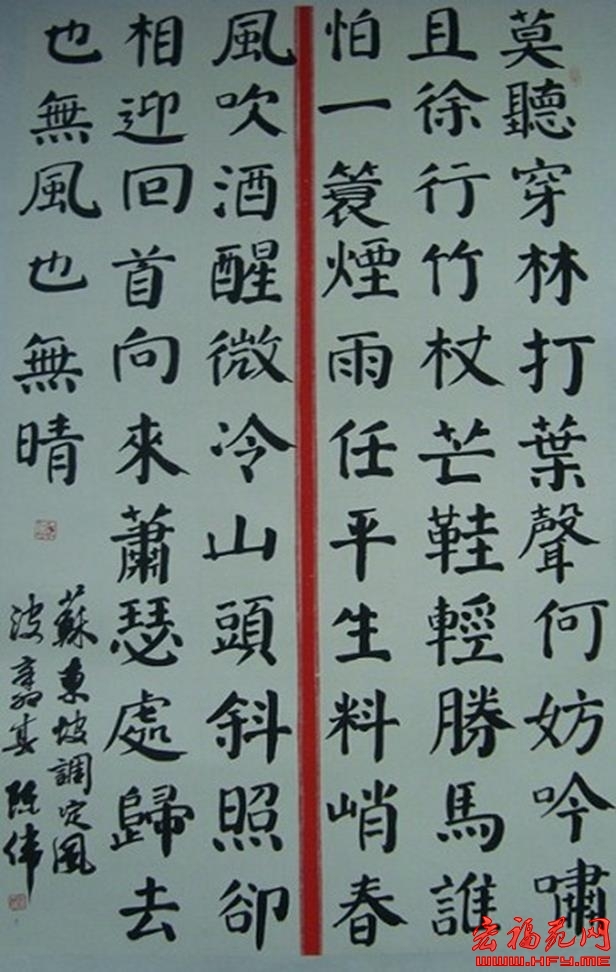 莫聽穿林打葉聲何妨吟嘯
且徐行竹杖芒鞋輕勝馬誰
怕一簑煙雨任平生料峭春
風吹酒醒微冷山頭斜照卻
相迎回首向來蕭瑟處歸去
也無風也無晴
蘇東坡調定風
波 辛卯 陳偉
宏福苑网
www.HFY.mE